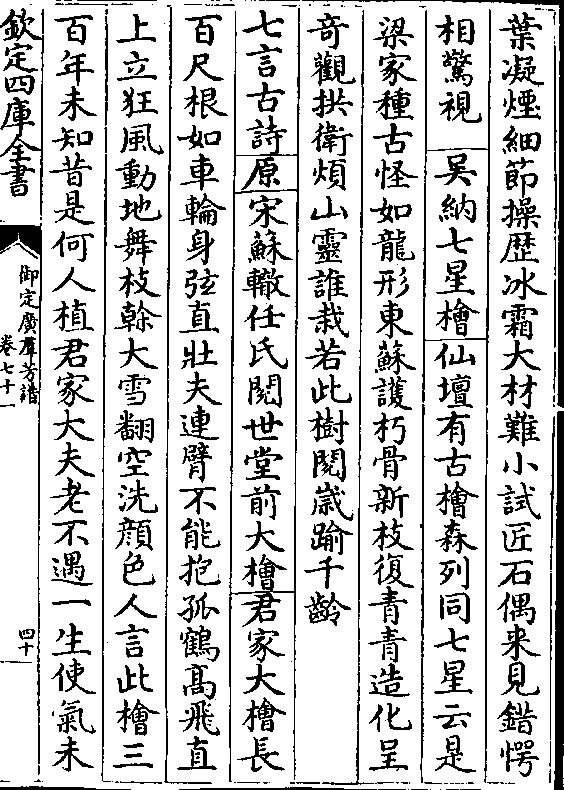 葉凝煙細節操歴冰霜大材難小試匠石偶来見錯愕
相驚視　吴納七星檜仙壇有古檜森列同七星云是
梁家種古怪如龍形東蘇護朽骨新枝復青青造化呈
奇觀拱衛煩山靈誰栽若此樹閲嵗踰千齡
七言古詩原宋蘇轍任氏閲世堂前大檜君家大檜長
百尺根如車輪身弦直壯夫連臂不能抱孤鶴髙飛直
上立狂風動地舞枝榦大雪翻空洗顔色人言此檜三
百年未知昔是何人植君家大夫老不遇一生使氣未
欽定四庫全書
御定廣羣芳譜
卷七十一
四十